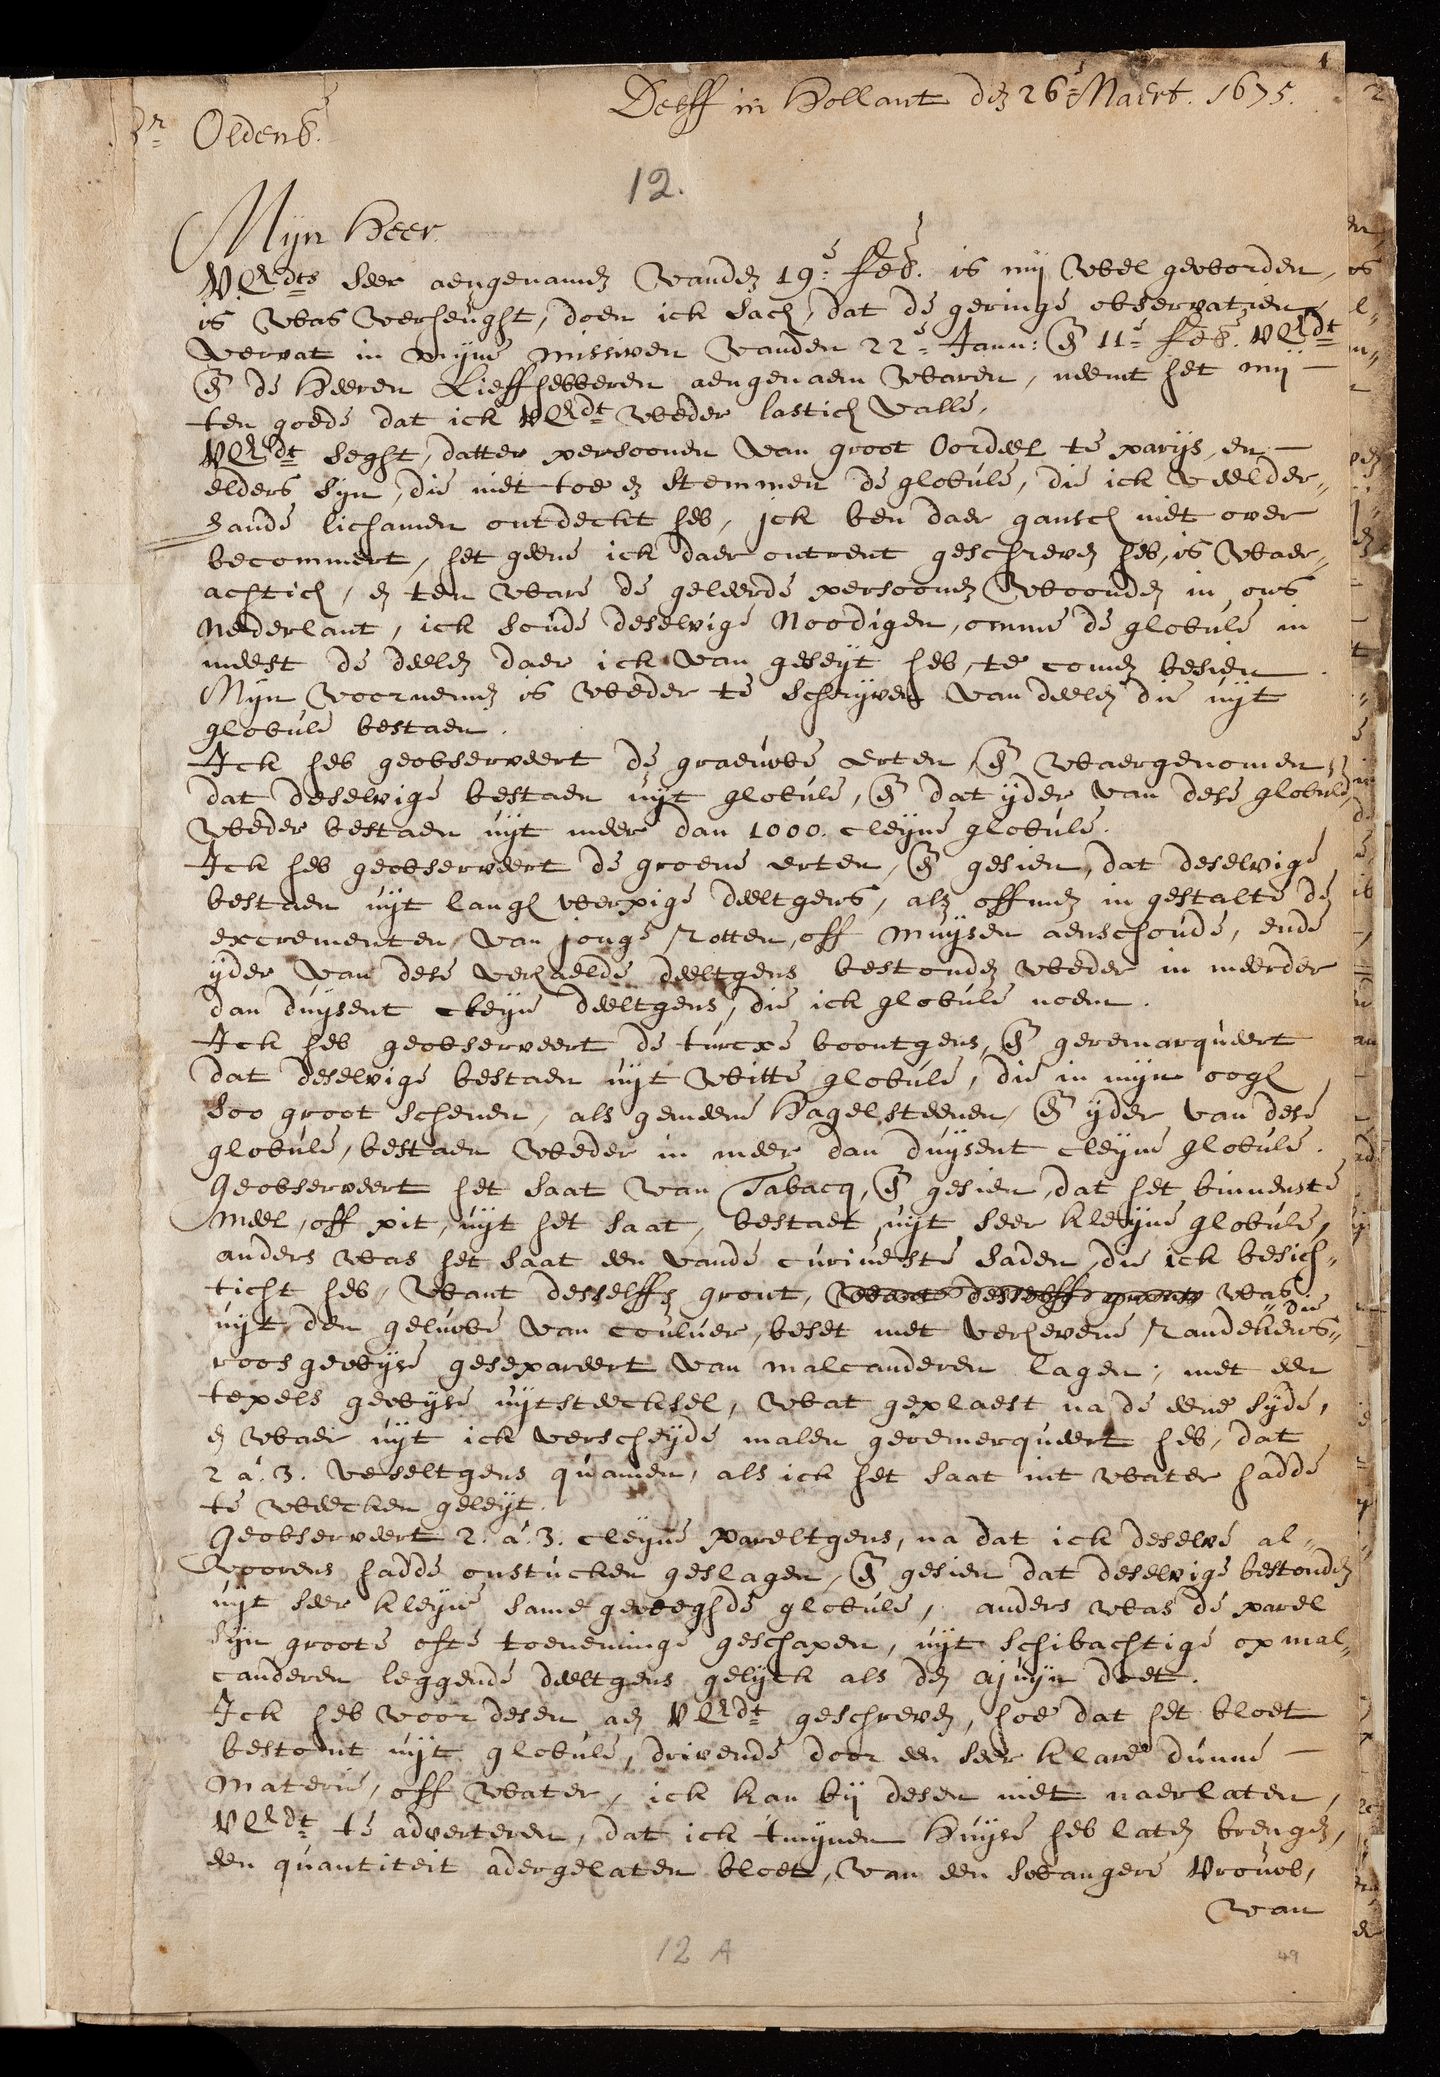 Delff in Hollant den 26e Maert. 1675.
Hr Oldenb.
12.
Mijn Heer.
VEEdts seer aengenamen vanden 19e feb. is mij wel geworden,
is was verheught, doen ick sach, dat de geringe observatien
vervat in mijne missiven vanden 22e Janu: & 11e feb. VEEdt
& de Heeren Lieffhebberen aengenaem waren, neemt het mij
ten goede dat ick VEEdt weder lastich valle,
VEEdt seght, datter persoonen van groot Oordeel te parijs, en
elders sijn, die niet toe en stemmen de globule, die ick veelder„
hande lichamen ontdeckt heb, ick ben daer gansch niet over
becommert, het geene ick daer ontrent geschreven heb, is waer„
achtich, en ten ware de geleerde persoonen woonden in ons
Nederlant, ick soude deselvige Noodigen, omme de globule in
meest de deelen daer ick van geseyt heb, te comen besien.
Mijn voornemen is weder te schrijven van deelen die uijt
globule bestaen.
Ick heb geobserveert de graeuwe erten, & waergenomen,
dat deselvige bestaen uijt globule, & dat ijder van dese globule
weder bestaen uijt meer dan 1000. cleijne globule.
Ick heb geobserveert de groene erten, & gesien, dat deselvige
bestaen uijt langh werpige deeltgens, als offmen in gestalte de
excrementen, van jonge Rotten, off muijsen aenschoude, ende
ijder van dese verhaelde deeltgens bestonden weder in meerder
dan duijsent cleijn deeltgens, die ick globule noem.
Ick heb geobserveert de turcxe boontgens, & geremarqueert
dat deselvige bestaen uijt witte globule, die in mijn oogh
soo groot schenen, als gemeene Hagelsteenen, & ijder van dese
globule, bestaen weder in meer dan duijsent cleijne globule.
Geobserveert het saat van Tabacq, & gesien, dat het binnenste
Meel, off pit, uijt het saat, bestaet uijt seer kleijne globule,
anders was het saat een vande curieuste saden, die ick besich„
ticht heb, want desselffs gront, want desselff gront was
uijt den geluwe van couluer, beset met verhevene Randekens„ die
roosgewijse gesepareert van malcanderen lagen, met een
tepels gewijse uijtsteecksel, wat geplaest na de eene sijde,
en waer uijt ick verscheijde malen geremerqueert heb, dat
2 à. 3. veseltgens quamen, als ick het saat int water hadde
te weecken geleijt.
Geobserveert 2. à. 3. cleijne Pareltgens, na dat ick deselve al„
voorens hadde onstucken geslagen, & gesien dat deselvige bestonden
uijt seer kleijne same gevoeghde globule, anders was de parel
sijn groote ofte toeneminge geschapen, uijt schibachtige op mal„
canderen leggende deeltgens gelijck als den ajuijn doet.
Ick heb voor desen aen VEEdt geschreven, hoe dat het bloet
bestont uijt globule, drivende door een seer klare dunne
Materie, off water, ick kan bij desen niet naerlaten,
VEEdt te adverteren, dat ick tmijnen Huijse heb laten brengen,
een quantiteit adergelaten bloet, van een swangere vrouw,
van
12 A
49